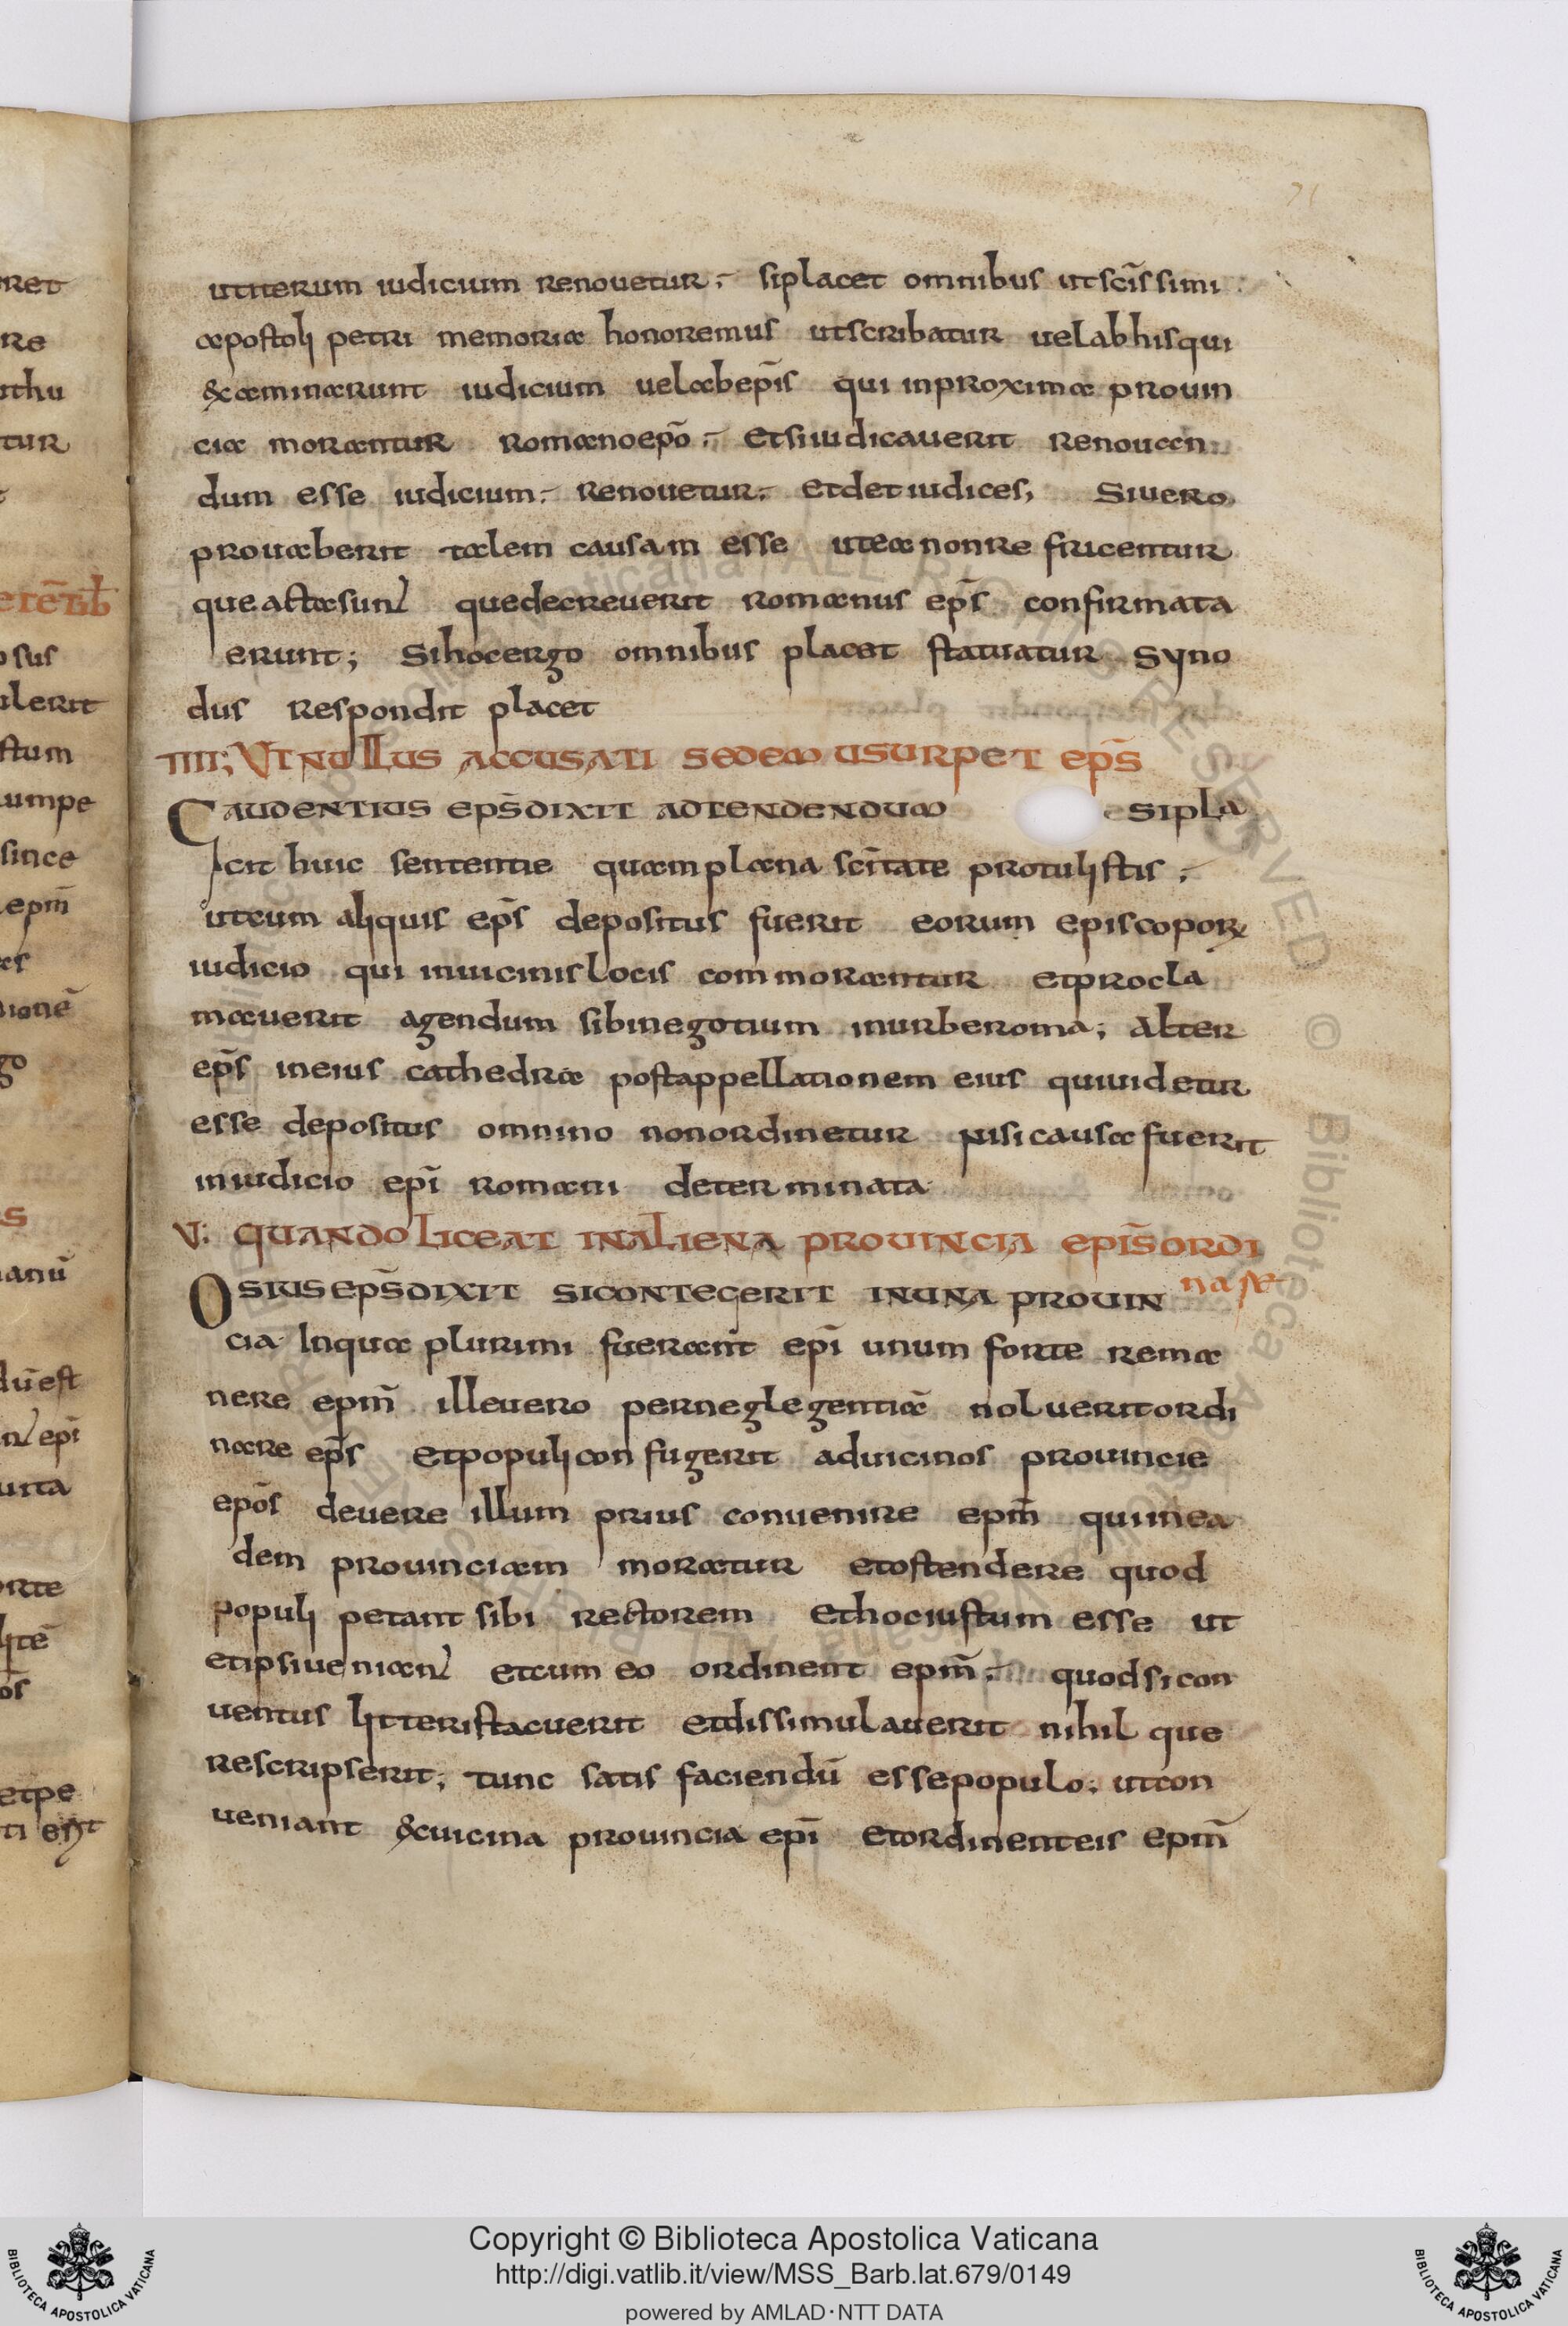 utiterum iudicium renovetur; siplacet omnibus utscīssimi
apostoli petri memoria honoremus utscribatur velabhisqui
&aminarunt iudicium velabep̄is qui inproxima provin
cia morantur romanoep̄o; etsiiudicaverit renovan
dum esse iudicium; renovetur; etdetiudices, Sivero
provaberit talem causam esse utea nonre fricentur
que actasunt quedecreverit romanus ep̄s confirmata
erunt; Sihocergo omnibus placet statuatur Syno
dus respondit placet
IIII; UTNULLUS ACCUSATI SEDEM USURPET EP̄S
GAUDENTIUS EP̄SDIXIT ADTENDENDUM SIPLA
cit huic sententie quam plana scītate protulistis;
utcum aliquis ep̄s depositus fuerit eorum episcopoꝝ
iudicio qui invicinislocis commorantur etprocla
maverit agendum sibinegotium inurberoma; Alter
ep̄s ineius cathedra postappellationem eius quividetur
esse depositus omnino nonordinetur nisicausafuerit
iniudicio ep̄i romani determinata
V; QUANDOLICEAT INALIENA PROVINCIA EP̄ISORDI
nare
OSIUSEP̄SDIXIT SICONTEGERIT INUNA PROVIN
cia Inqua plurimi fuerant ep̄i unum forte rema
nere ep̄m illevero perneglegentiā nolueritordi
nare ep̄s etpopuliconfugerit advicinos provincie
ep̄os devere illum prius convenire ep̄m quiinea
dem provinciam moratur etostendere quod
populi petant sibi rectorem ethociustum esse ut
etipsiveniant etcum eo ordinent ep̄m; quodsicon
ventus litteristacuerit etdissimulaverit nihil que
rescripserit; tunc satis faciendū essepopulo; utcon
veniant &vicina provincia ep̄i etordinenteis ep̄m
Copyright © Biblioteca Apostolica Vaticana
http://digi.vatlib.it/view/MSS_Barb.lat.679/0149
powered by AMLAD·NTT DATA
BIBLIOTECA APOSTOLICA VATICANA
BIBLIOTECA APOSTOLICA VATICANA